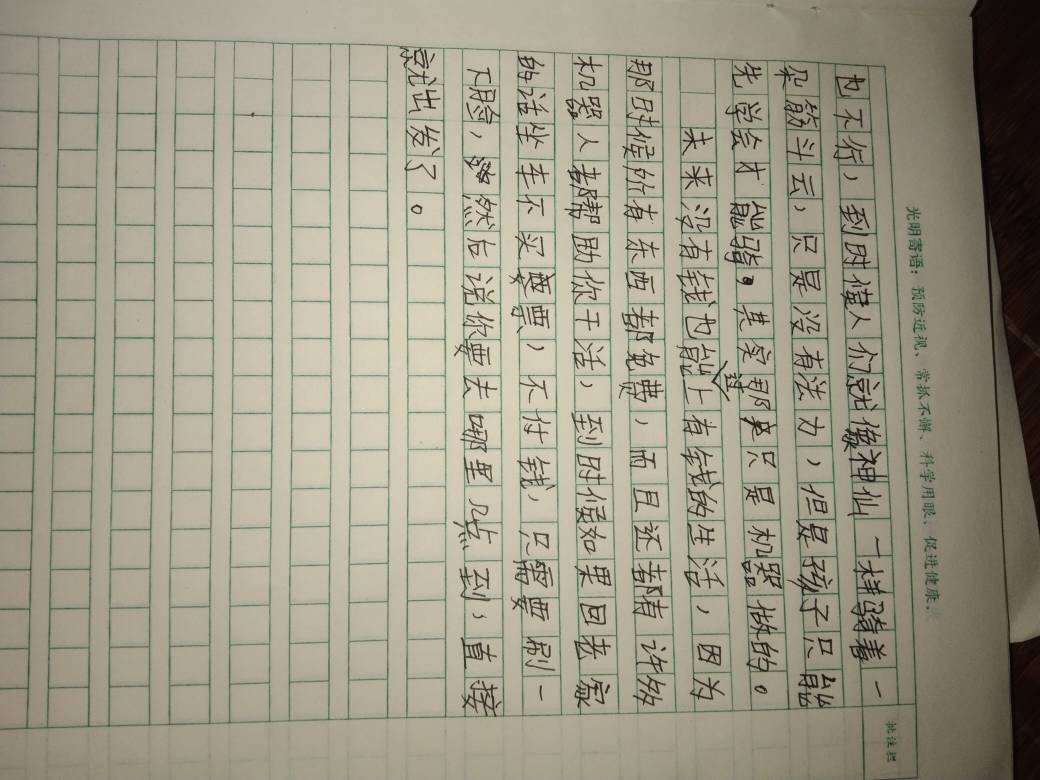 光明寄语：预防近视、常抓不懈、科学用眼、促进健康。
批注栏
也不行，到时候人们就像神仙一样骑着一
朵筋斗云，只是没有法力，但是孩子只能
先学会才能骑。其实那只是机器做的。
未来没有钱也能过上有钱的生活，因为
那时候所有东西都免费，而且还都有许多
机器人都帮助你干活，到时候如果回去家
的话坐车不买票，不付钱，只需要刷一
下脸，然后说你要去哪里几点到，直接
就出发了。